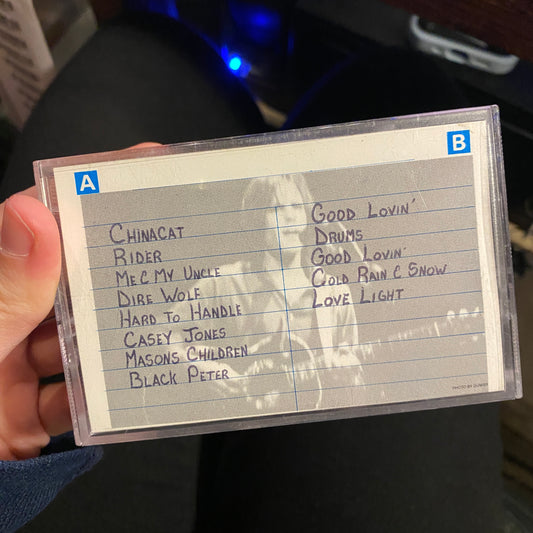 A
B
CHINACAT
RIDER
ME & MY UNCLE
DIRE WOLF
HARD TO HANDLE
CASEY JONES
MASONS CHILDREN
BLACK PETER
GOOD LOVIN'
DRUMS
GOOD LOVIN'
COLD RAIN & SNOW
LOVE LIGHT
PHOTO BY